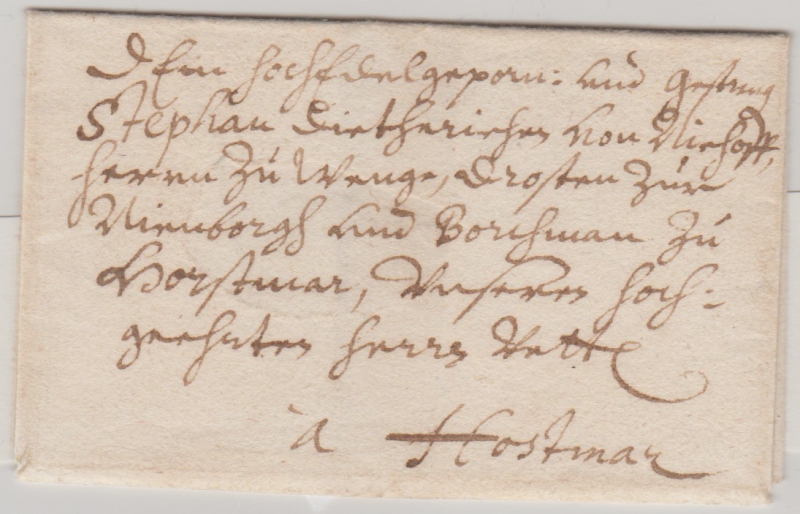 dEm HochEdelgeporn: und gestreng
Stephan Dietherichen von Niehoff,
herrn zu Wenge, Drosten zur
Nienborgh und Borchman zu
Horstmar, Unseren hoch-
geehrten herrn Vett
a Hostmar